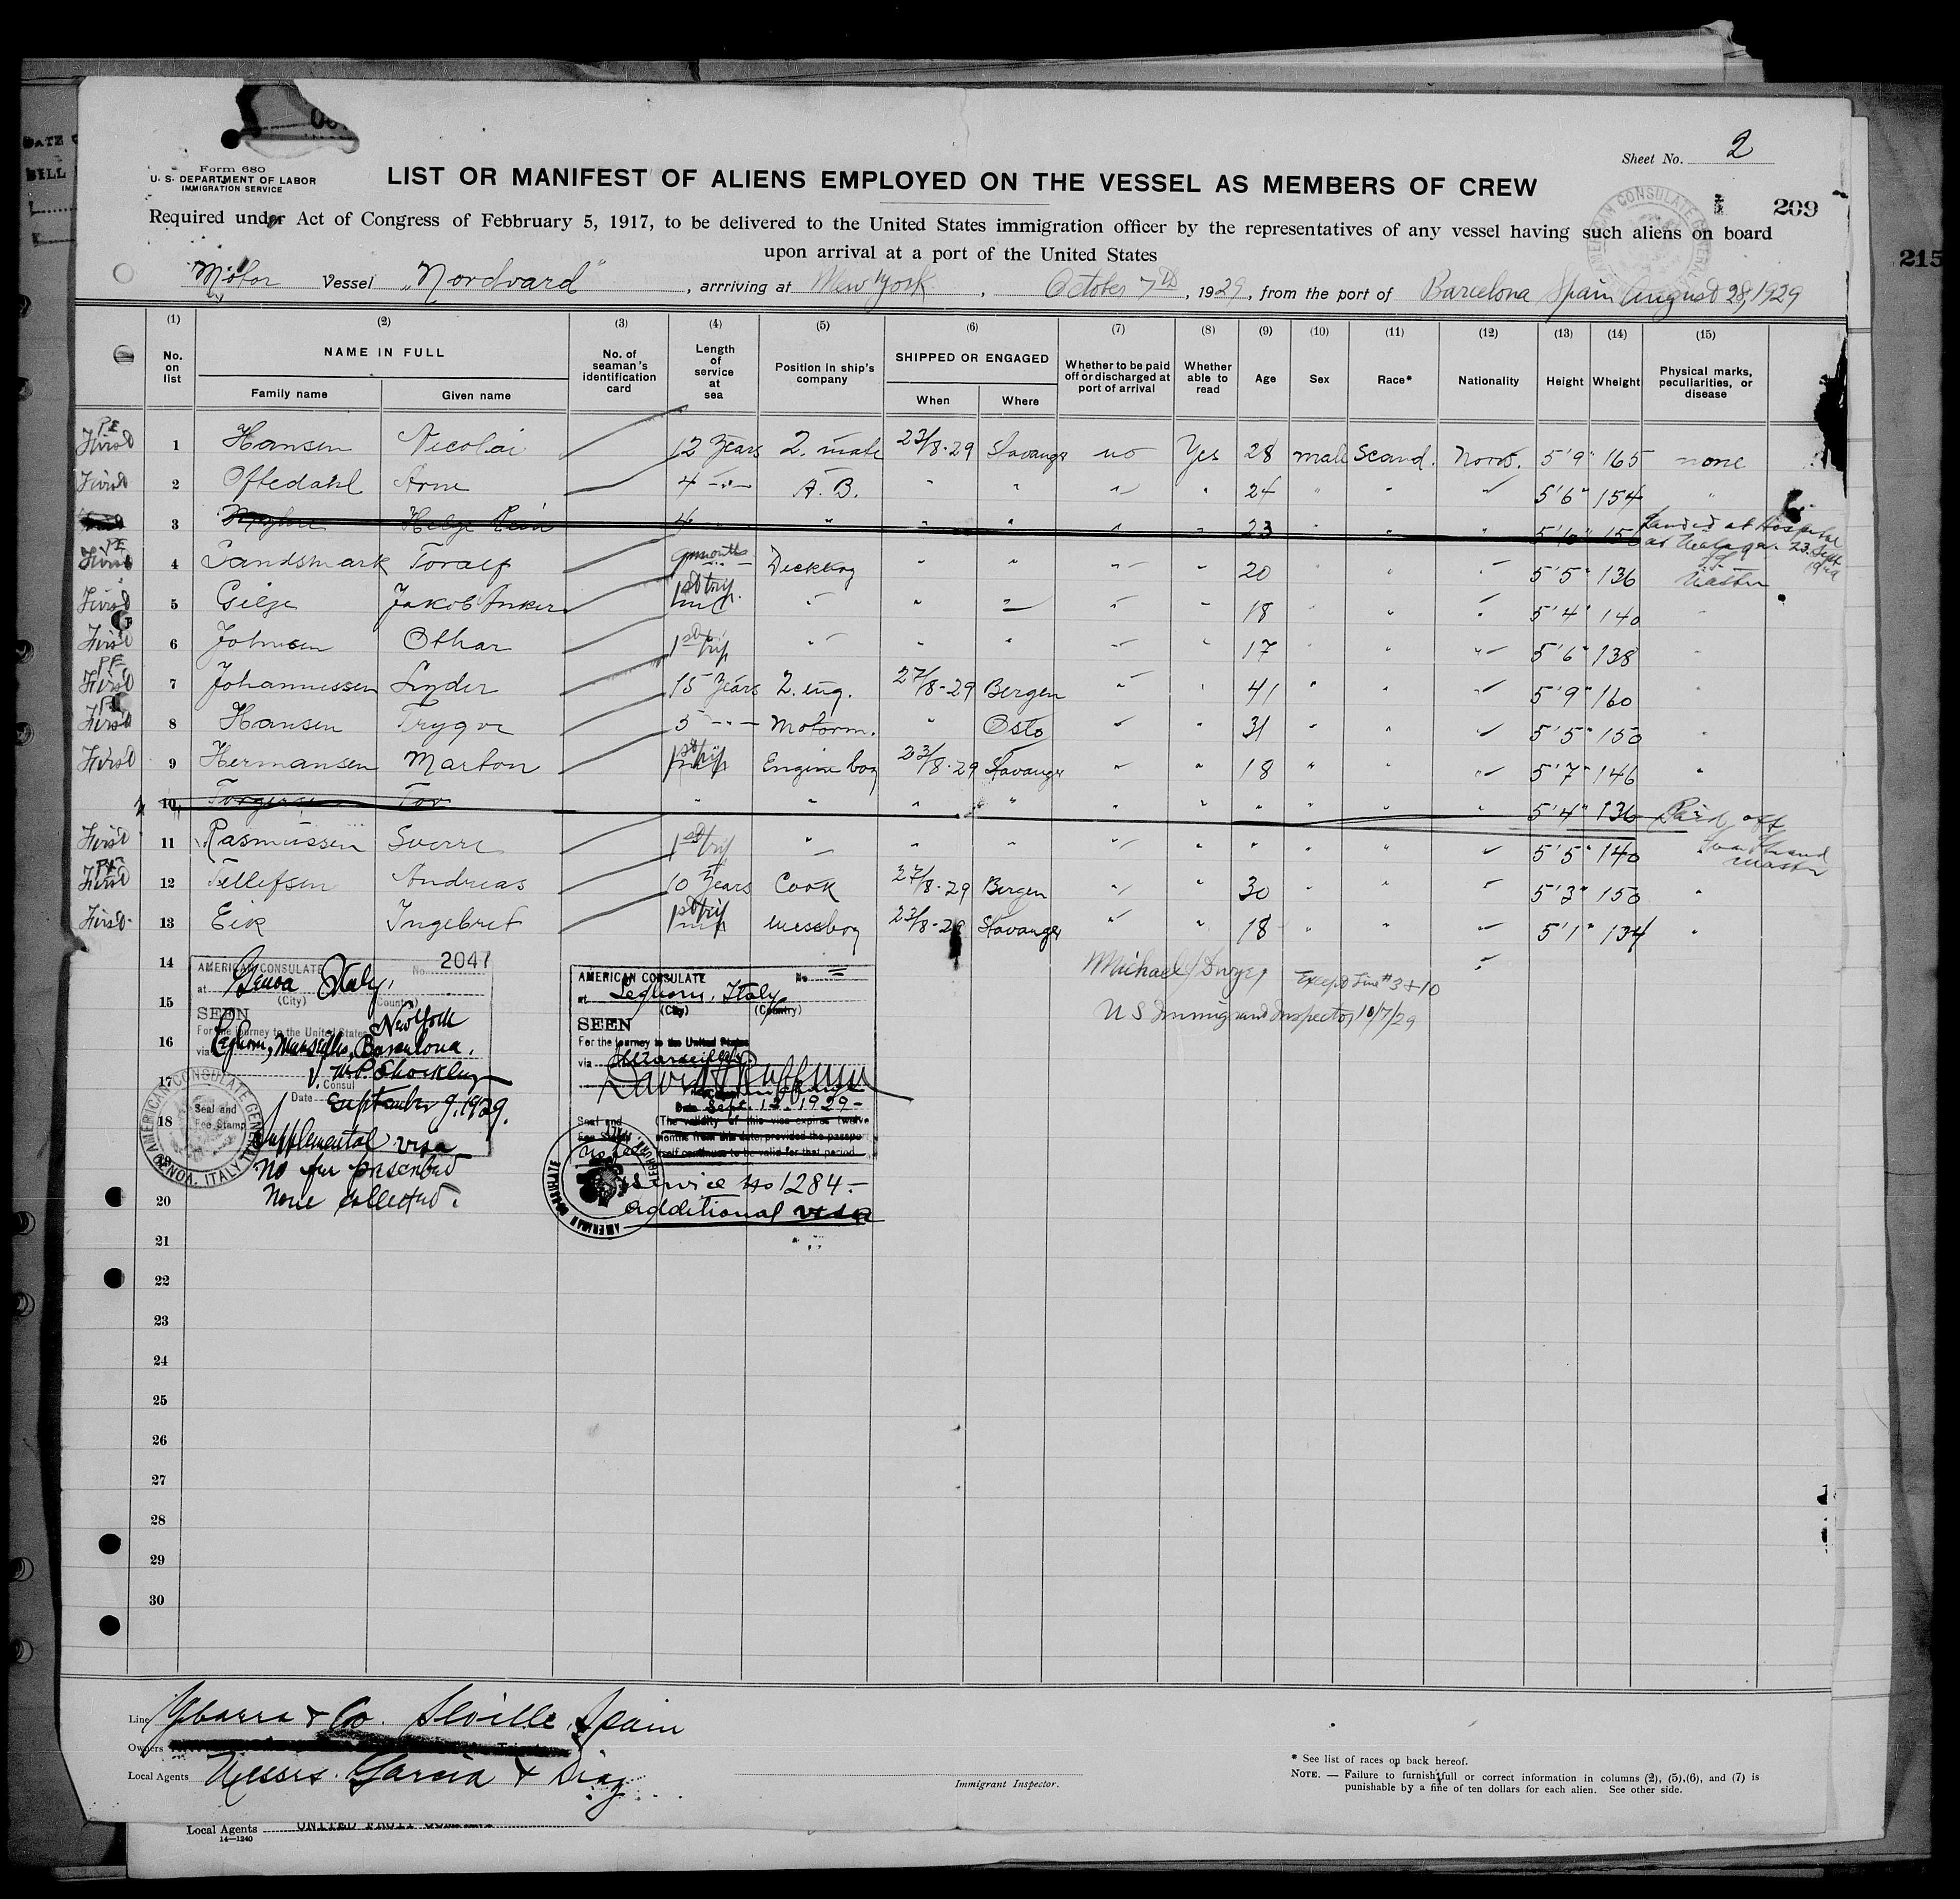 Sheet No. 2
Form 680
U. S. DEPARTMENT OF LABOR
IMMIGRATION SERVICE
LIST OR MANIFEST OF ALIENS EMPLOYED ON THE VESSEL AS MEMBERS OF CREW
209
215
Required under Act of Congress of Febbruary 5, 1917, to be delivered to the United States immigration officer by the representatives of any vessel having such aliens on board
upon arrival at a port of the United States
Motor Vessel "Nordvard", arrriving at New York, October 7th, 1929, from the port of Barcelona Spain August 28, 1929
(1) (2) (3) (4) (5) (6) (7) (8) (9) (10) (11) (12) (13) (14) (15)
No. on list NAME IN FULL Family name Given name No. of seaman's identification card Length of service at sea Position in ship's company SHIPPED OR ENGAGED When Where Whether to be paid off or discharged at port of arrival Whether able to read Age Sex Race* Nationality Height Wheight Physical marks, peculiarities, or disease
First PE 1 Hansen Nicolai 12 years 2. mate 23/8-29 Stavanger no Yes 28 male Scand. Norw. 5'9" 165 none
First 2 Oftedahl Arne 4 -"- A. B. " " " " 24 " " " 5'6" 154 "
3 Helge 4 " " " " " 23 " " " 5'6" 156 Landed at Hospital at Malaga 23. Sept 1929 Master
First PE 4 Sandsmark Toralf 9 months Deckboy " " " " 20 " " " 5'5" 136
First 5 Gilje Jakob Inker 1st trip " " " " " 18 " " " 5'4" 140 "
First 6 Johnsen Othar 1st trip " " " " " 17 " " " 5'6" 138 "
First PE 7 Johannessen Synder 15 years 2. eng. 27/8-29 Bergen " " 41 " " " 5'9" 160 "
First 8 Hansen Trygve 5 -"- Motorm. " Oslo " " 31 " " " 5'5" 150 "
First 9 Hermansen Marton 1st trip Engine boy 23/8-29 Stavanger " " 18 " " " 5'7" 146 "
10 Torgersen Tor " " " " " " " " " " 5'4" 136 Paid off
First 11 Rasmussen Sverre 1st trip " " " " " " " " " 5'5" 140 "
Master
First PE 12 Tellefsen Andreas 10 years Cook 27/8-29 Bergen " " 30 " " " 5'3" 150 "
First 13 Eik Ingebret 1st trip Messboy 23/8-29 Stavanger " " 18 " " " 5'1" 134 "
14
15
16
17
18
20
21
22
23
24
25
26
27
28
29
30
AMERICAN CONSULATE No. 2047
at Genoa Italy.
(City) (Country)
SEEN
For the journey to the United States New York
via Leghorn, Marseilles, Barcelona.
W.P. Shockley
Consul
Date September 9, 1929.
Seal and
Fee Stamp
AMERICAN CONSULATE GENERAL GENOA, ITALY
Supplemental visa
No fee prescribed
None collected.
AMERICAN CONSULATE No.
at Leghorn, Italy
(City) (Country)
SEEN
For the journey to the United States
via Marseilles.
Date Sept. 12. 1929
Seal and
Fee Stamp
(The validity of this visa expires twelve
months from this date, provided the passport
itself continues to be valid for that period
no fee
AMERICAN CONSULATE
Service No 1284.-
additional visa
Michael J Dwyer Except Line # 3 + 10
U S Immigrant Inspector 10/7/29
Line Ybarra & Co. Seville, Spain
Owners
Local Agents Messrs. Garcia & Diaz
Immigrant Inspector.
* See list of races on back hereof.
NOTE. — Failure to furnish full or correct information in columns (2), (5), (6), and (7) is
punishable by a fine of ten dollars for each alien. See other side.
Local Agents UNITED FRUIT COMPANY
14—1240